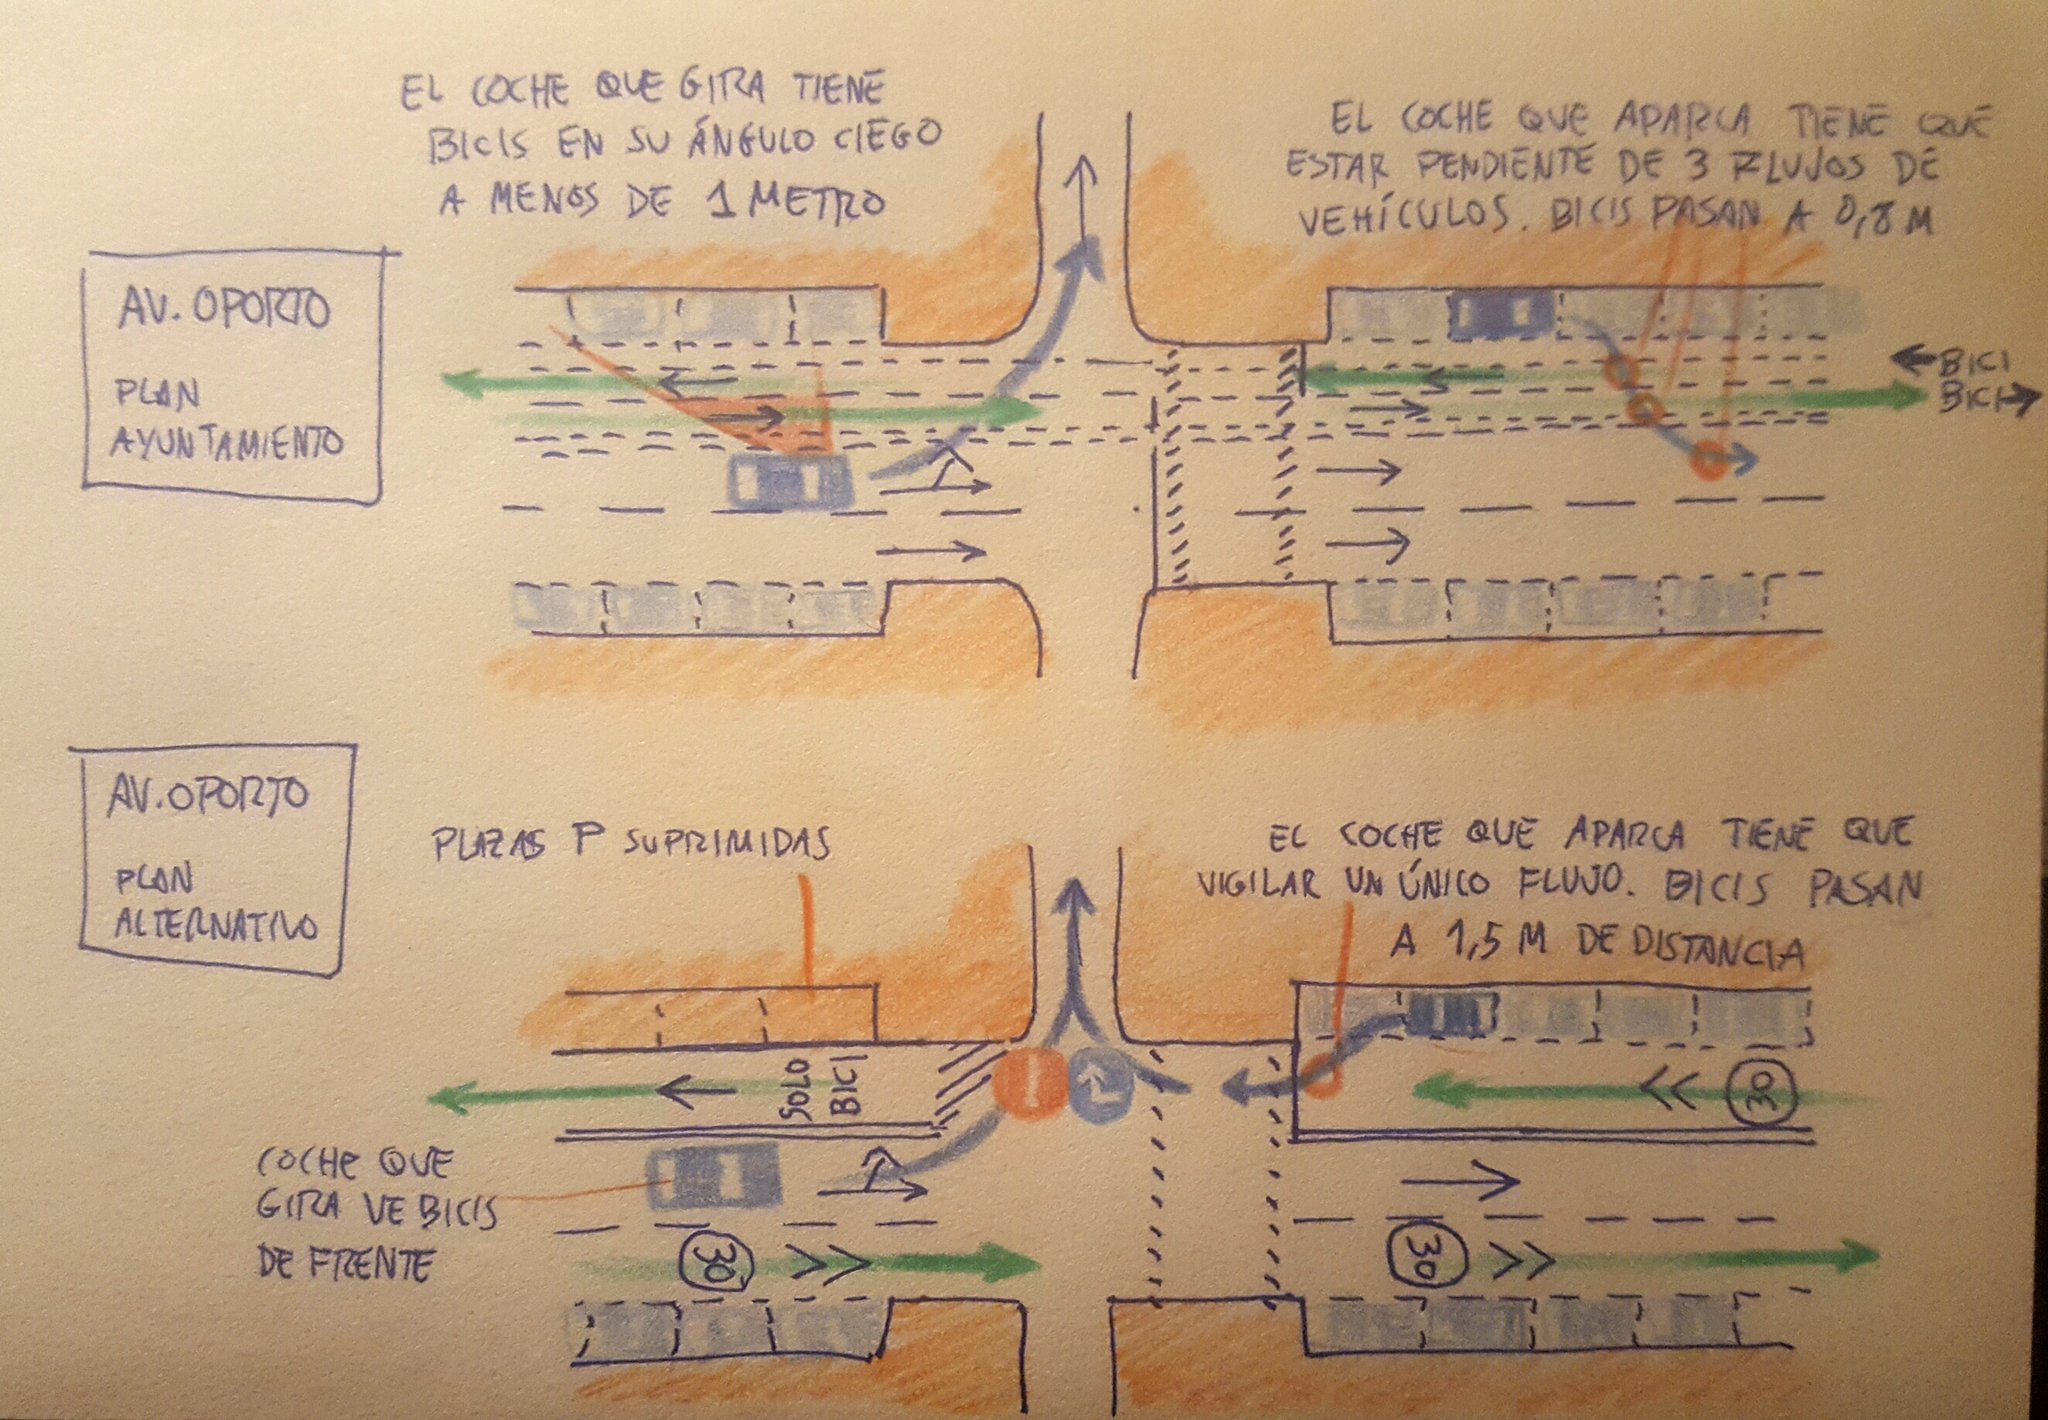 EL COCHE QUE GIRA TIENE
BICIS EN SU ÁNGULO CIEGO
A MENOS DE 1 METRO
EL COCHE QUE APARCA TIENE QUE
ESTAR PENDIENTE DE 3 FLUJOS DE
VEHÍCULOS. BICIS PASAN A 0,8 M
AV. OPORTO
PLAN
AYUNTAMIENTO
BICI
BICI
AV. OPORTO
PLAN
ALTERNATIVO
PLAZAS P SUPRIMIDAS
EL COCHE QUE APARCA TIENE QUE
VIGILAR UN ÚNICO FLUJO. BICIS PASAN
A 1,5 M DE DISTANCIA
SOLO
BICI
30
COCHE QUE
GIRA VE BICIS
DE FRENTE
30
30